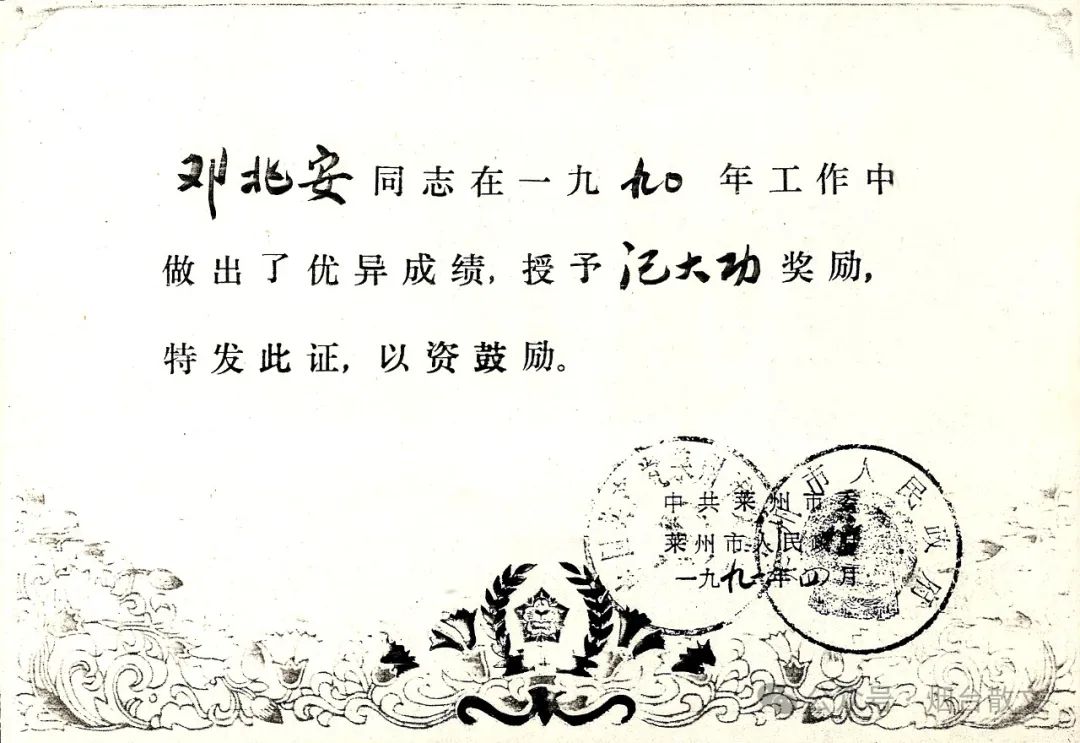 邓兆安同志在一九九〇年工作中
做出了优异成绩，授予记大功奖励，
特发此证，以资鼓励。
中共莱州市委
莱州市人民政府
一九九一年四月
市人民政府
公众号·烟台散文